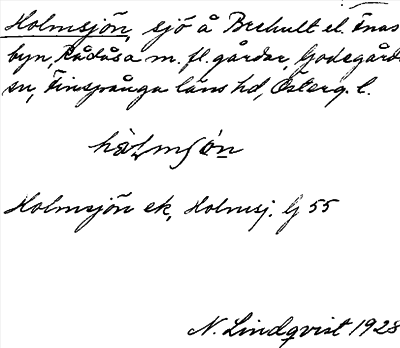 Holmsjön, sjö å Brehult el. Finas
byn, Rådåsa m. fl. gårdar, Godegårds
sn, Finspånga läns hd, Österg. l.
hòlmʃø̀n
Holmsjön ek, Holmsj. Gj 55
N. Lindqvist 1928